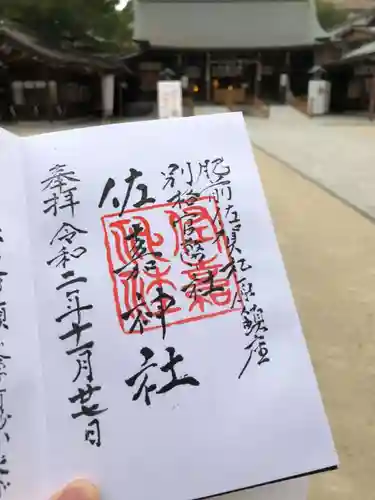 肥前佐賀松原鎮座
別格官幣社
佐嘉神社
奉拝
令和二年十一月廿七日